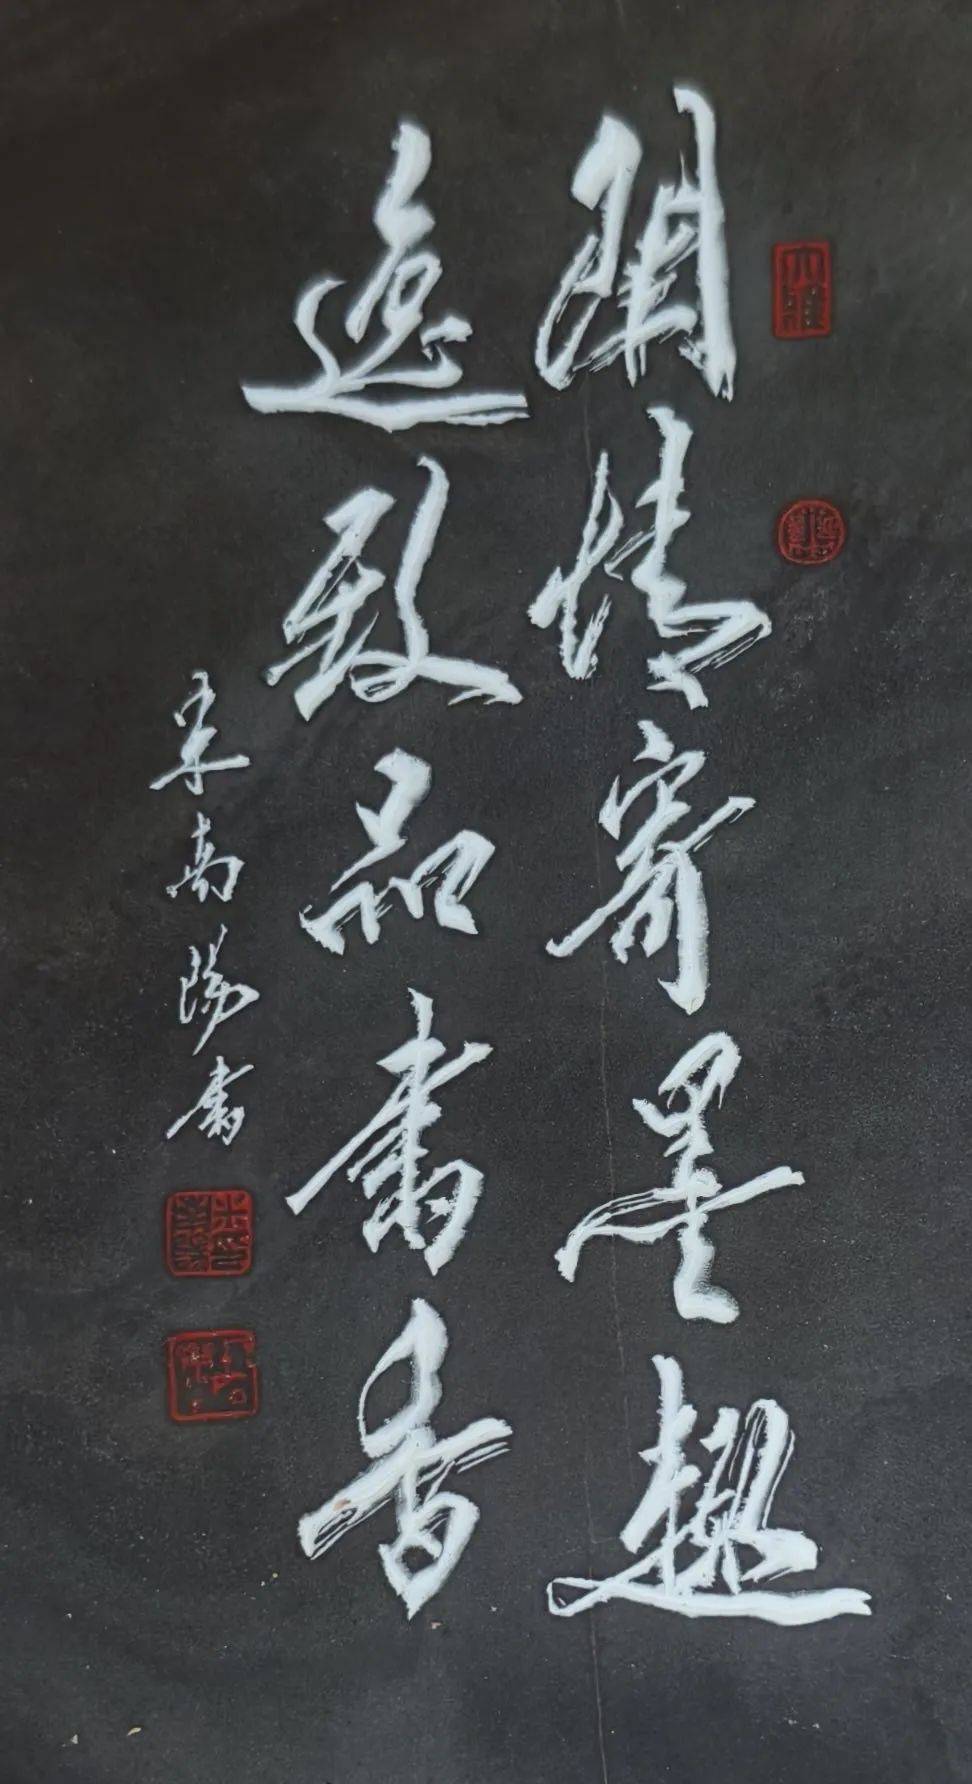 閑情寄墨趣
逸致品書香
米南陽書